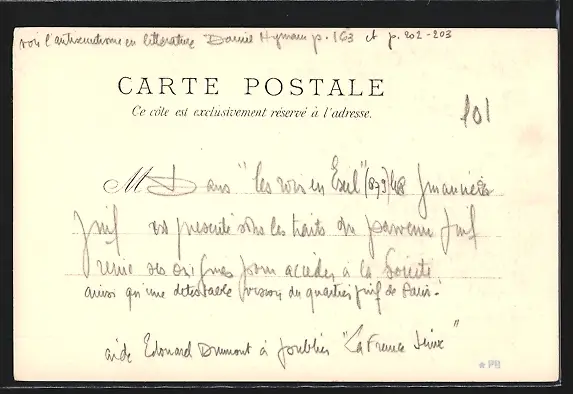 voir l'antisemitisme en litterature Daniel Hyman p. 163 et p. 202-203
CARTE POSTALE
Ce côte est exclusivement réservé à l'adresse.
101
M Dans "les rois en Exil" (1879) le financier
juif est presenté sous les traits du parvenu juif
renie ses origines pour accéder à la Société
ainsi qu'une detestable vision du quartier juif de Paris.
aide Edouard Drumont à publier "La France Juive"
*PB